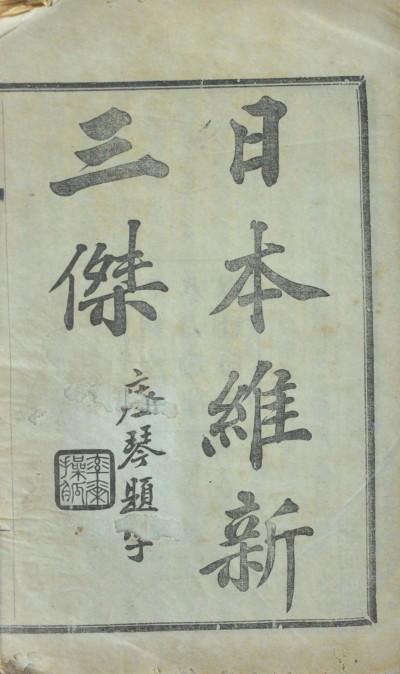 日本維新
三傑
琴題